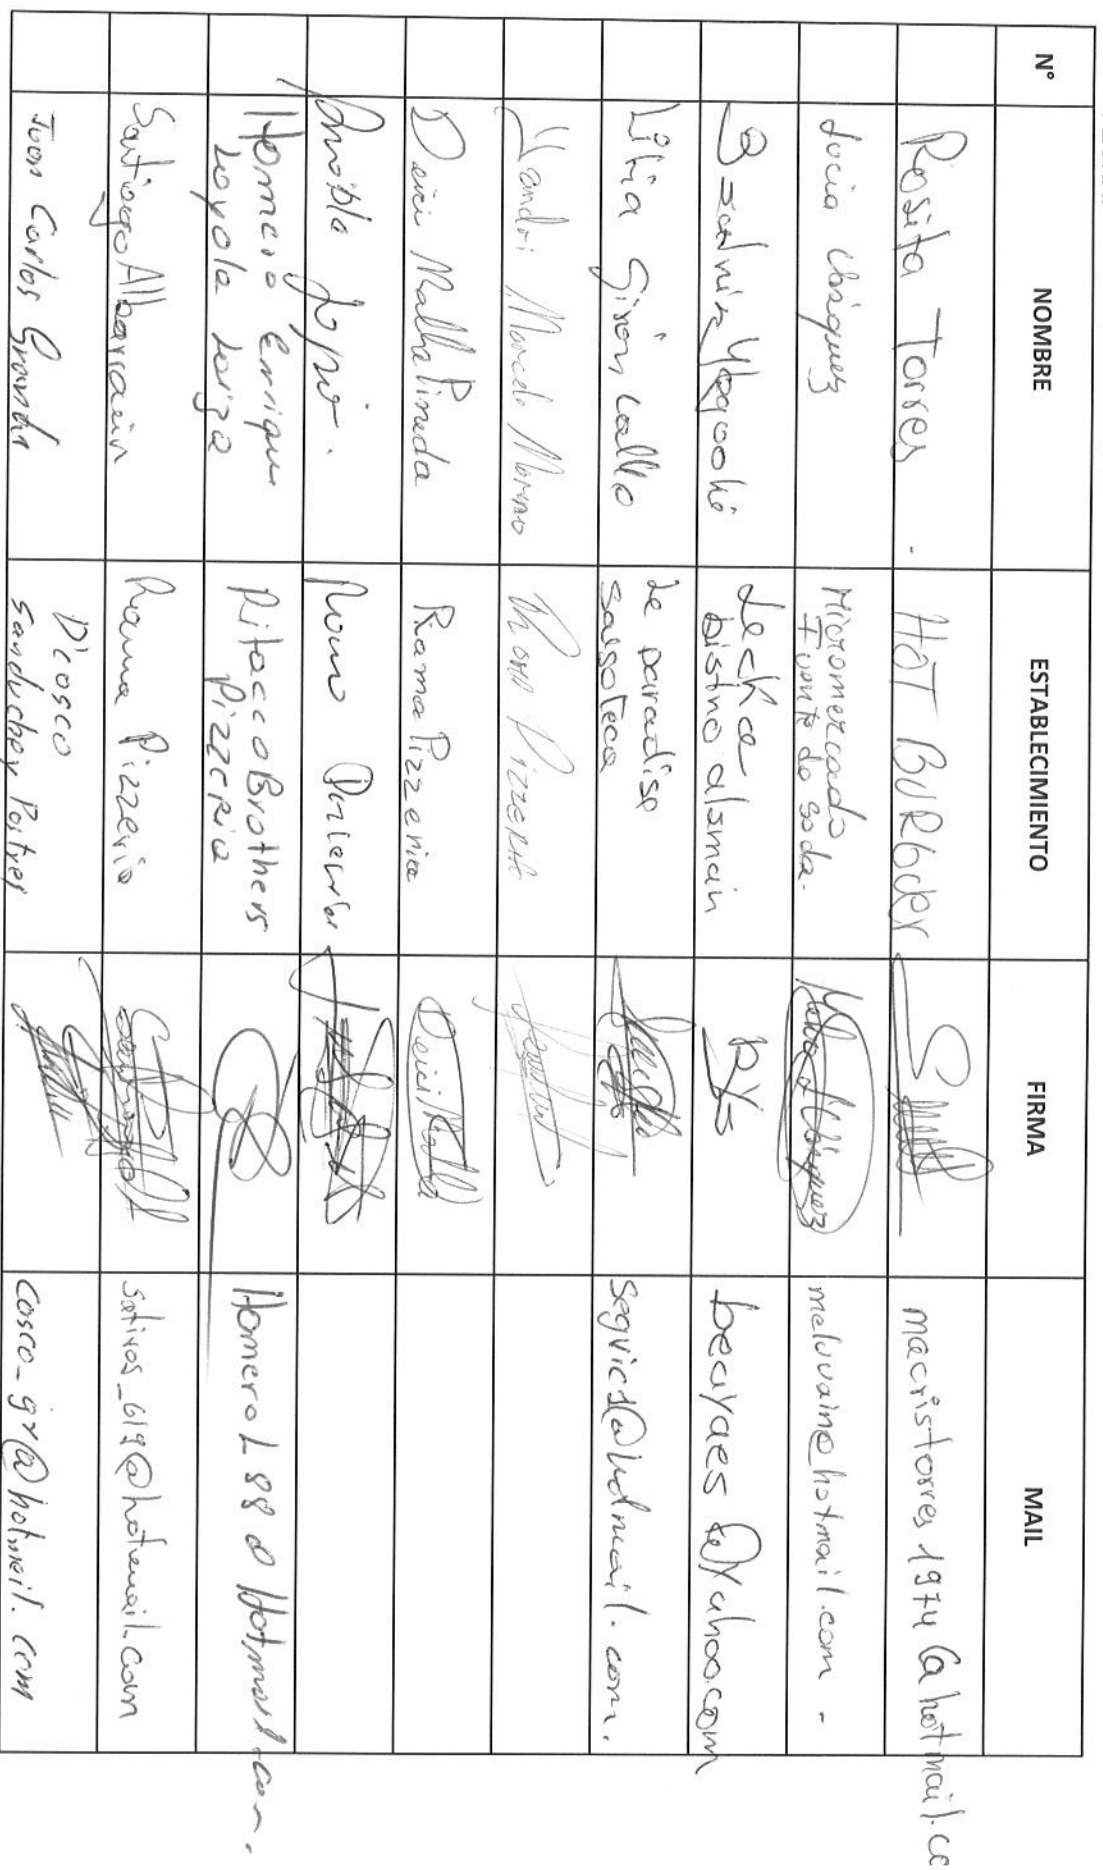 N° NOMBRE ESTABLECIMIENTO FIRMA MAIL
Rosita Torres . HOT BURGUER macristorres1974@hotmail.co
Lucia Vásquez Micromercado
Fuente de soda. meluvaine@hotmail.com -
Leche
Bistro alemán RYs beayaes@yahoo.com
Lilia Girón Calle Le paradise
salsoteca segvic1@hotmail.com.
Yandri Marcelo Moreno Roma Pizzeria
Deici Malla Pineda Rama Pizzeria Deici Malla
Roma Pizzeria
Homero Enrique
Loyola Loiza Ritacco Brothers
Pizzeria HomeroL88@Hotmail.com.
Santiago Albarracín Rauma Pizzeria sativos_619@hotmail.com
Juan Carlos Granda D'cosco
Sanduches y Postres cosco_gr@hotmail.com